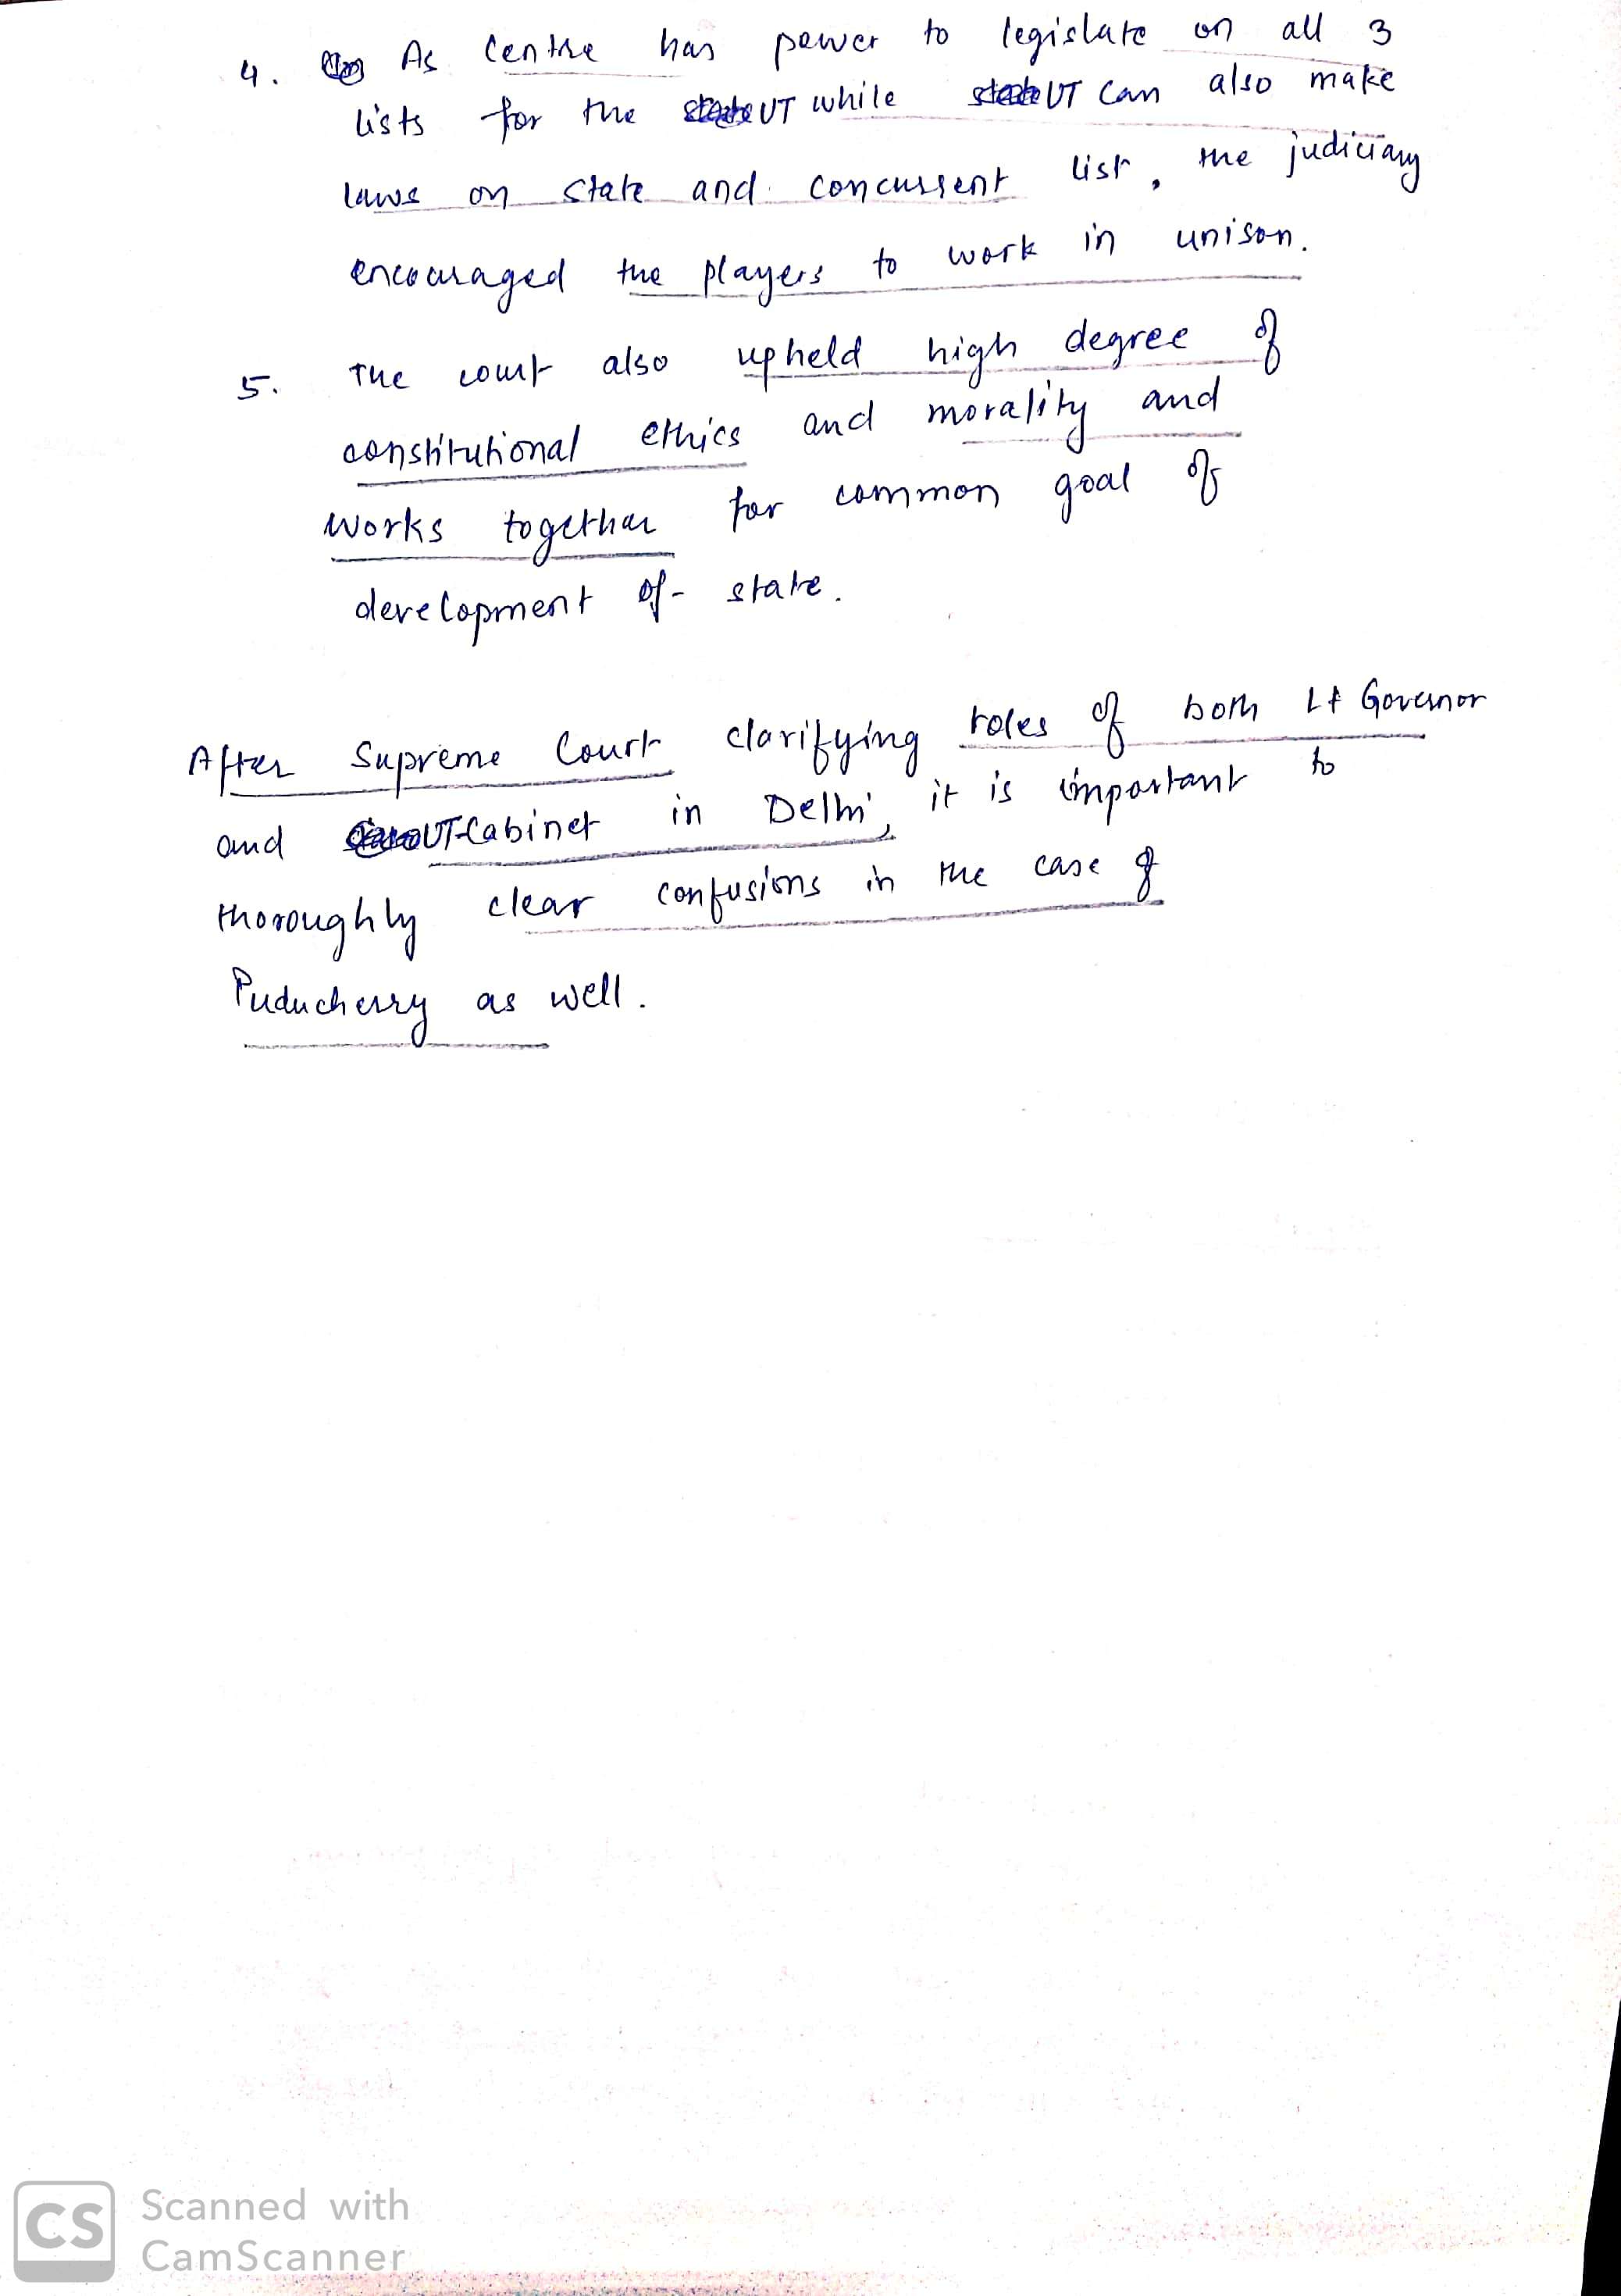 4. As Centre has power to legislate on all 3
lists for the UT while UT can also make
laws on state and concurrent list, the judiciary
encouraged the players to work in unison.
5. The court also upheld high degree of
constitutional ethics and morality and
works together for common goal of
development of state.
After Supreme Court clarifying roles of both Lt Governor
and UT-Cabinet in Delhi, it is important to
thoroughly clear confusions in the case of
Puducherry as well.
CS Scanned with
CamScanner